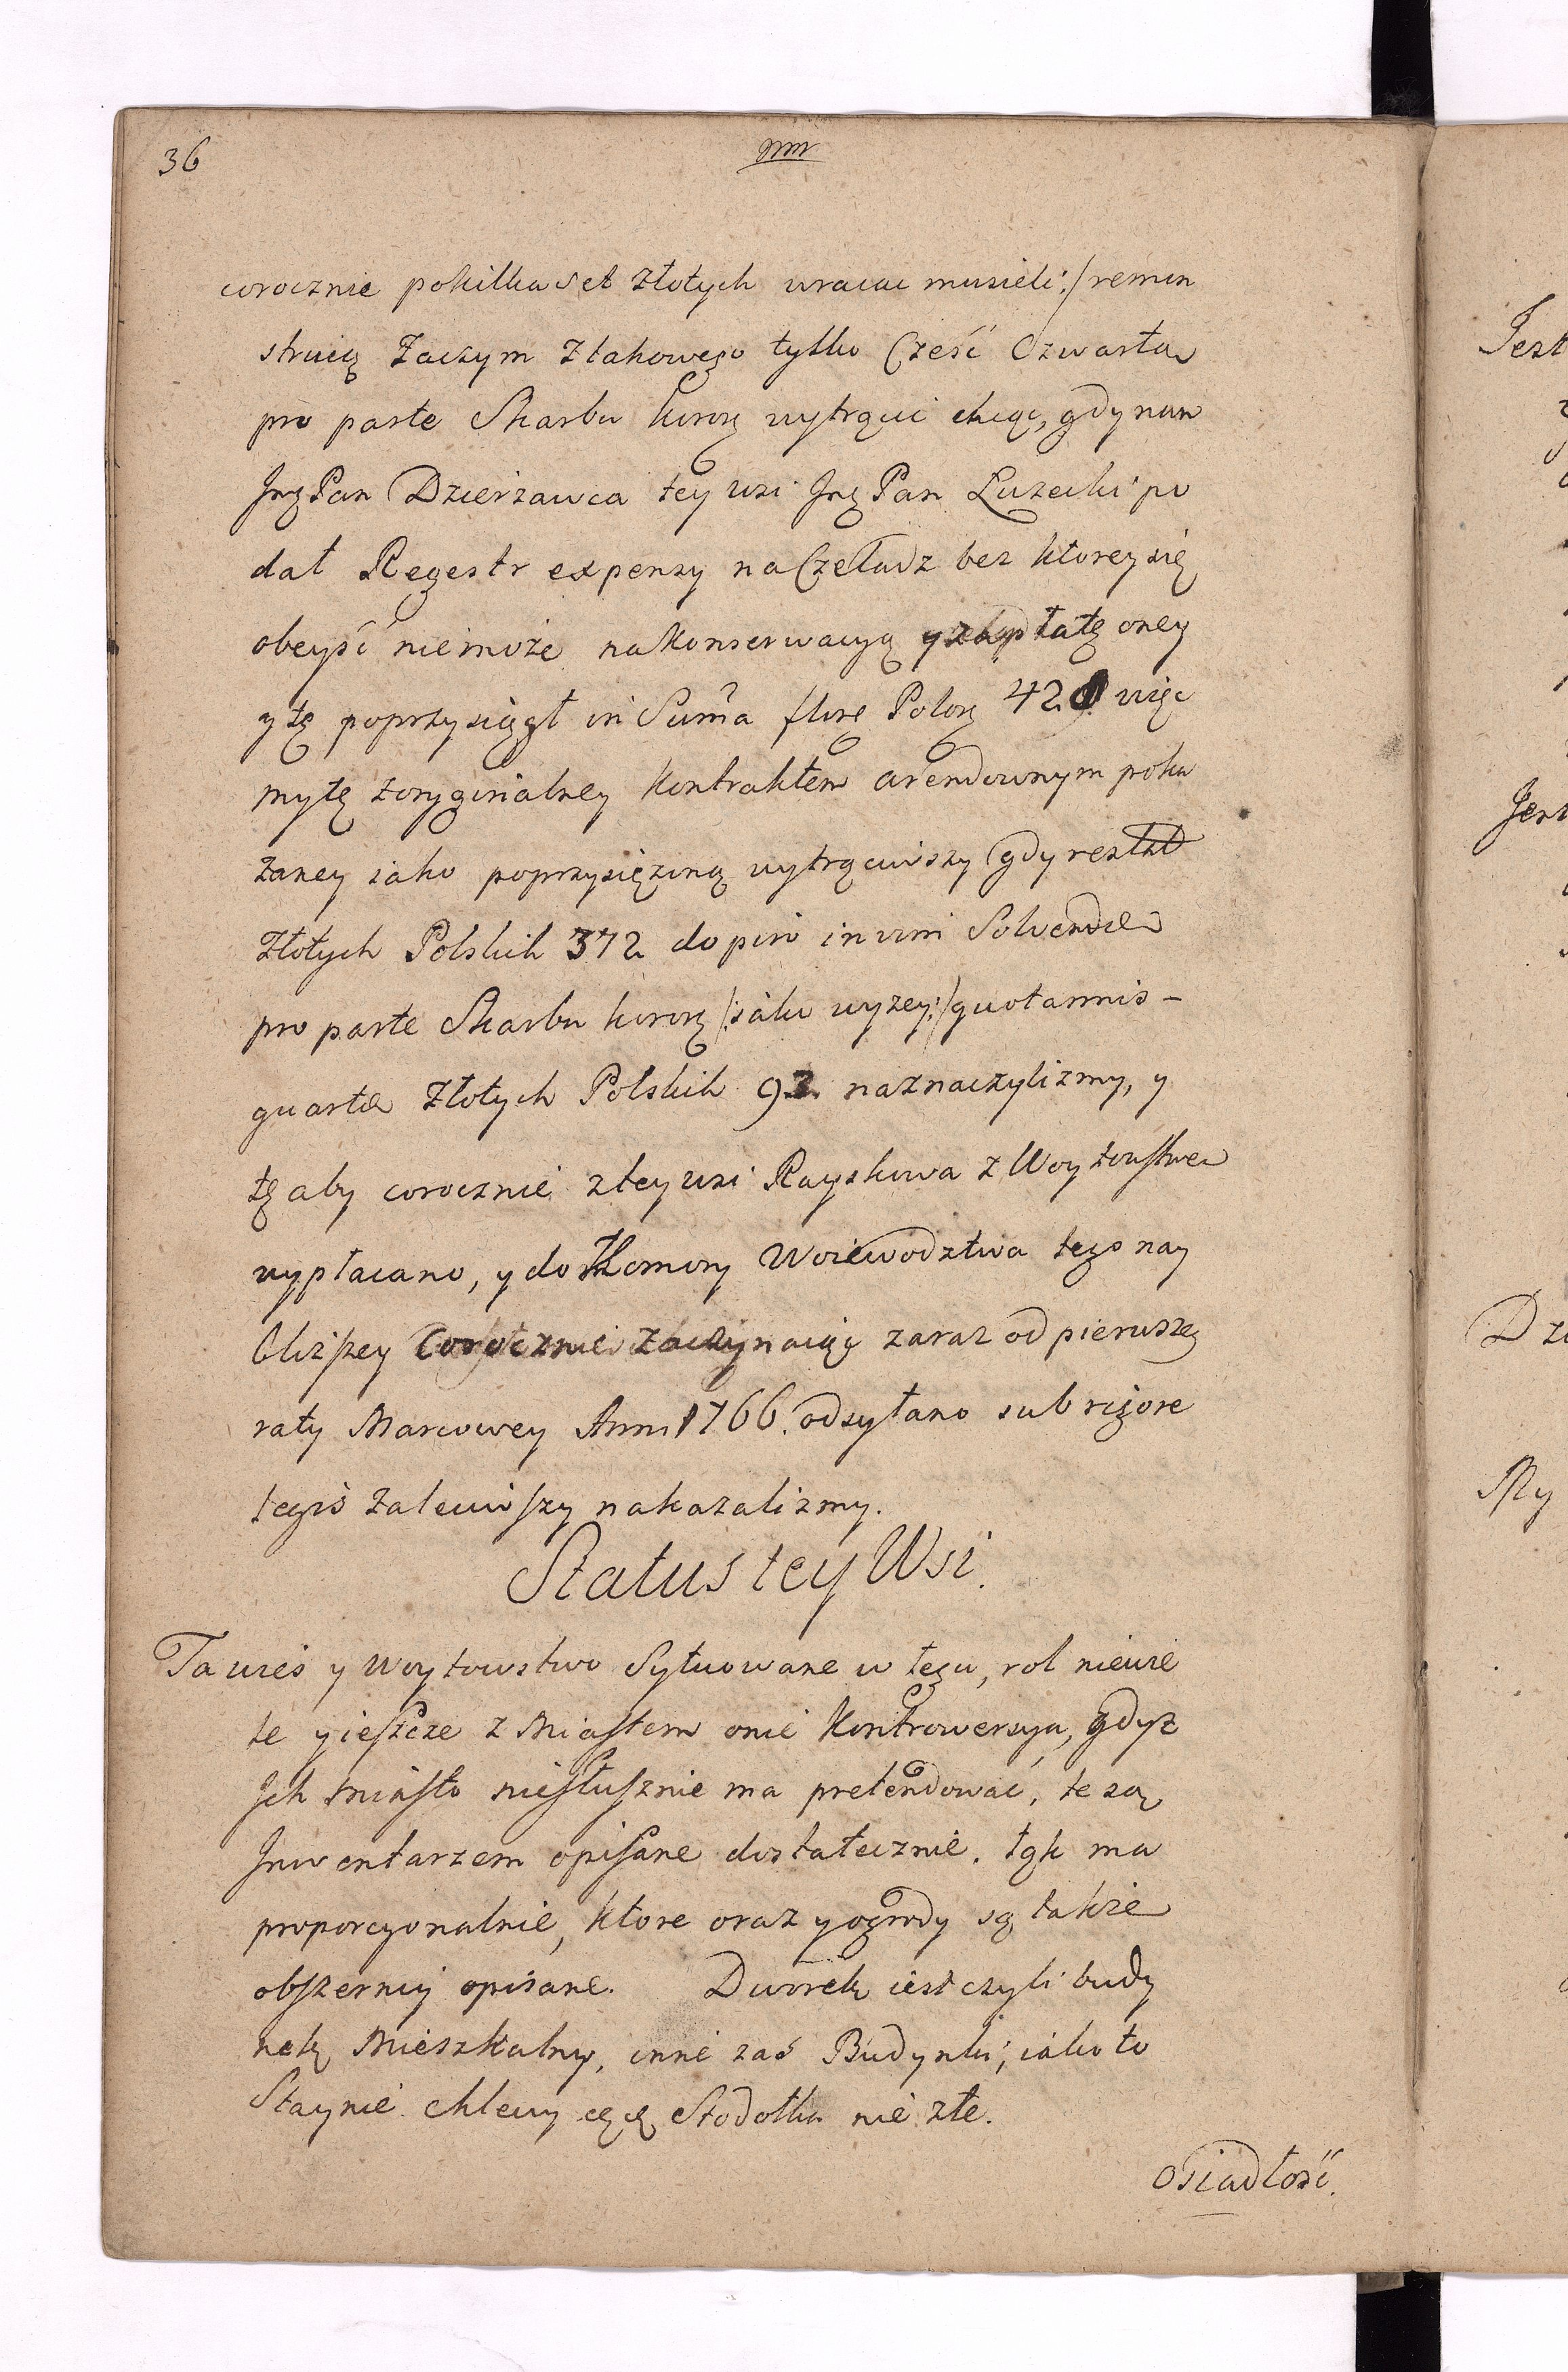 36
corocznie pokilka set złotych wracac musieli:/ remon
strucą Zaczym Ztakowego tylko Cześć Czwarta
pro parte Skarbu korong wytrącić chcąc, gdy nam
Img Pan Dzierżawca tey wsi Img Pan Łuzecki po
dał Regestr expensy na Czeladz bez ktorey się
obeyść niemoże na Konserwacyą y zapłatę oney
y tę poprzysiągł in Suma flore Polong 420 więc
my tę zoryginalney kontraktem arendownym poka
zaney iako poprzysiężoną wytrąciwszy gdy resztat
Złotych Polskich 372 do pero in vim Solvendae
pro parte Skarbu korong /:iako wyzey:/ quotannis -
quartae Złotych Polskich 93 naznaczylizmy, y
tę aby corocznie z tey wsi Rayskowa z Woytowstwa
wypłacano, y do Komory Woiewodztwa tego nay
bliższey Corocznie zaczynaiąc zaraz od pierwszey
raty Marcowey Anni 1766. odsyłano sub rigore
legis zaleciwszy nakazalizmy.
Status tey Wsi.
Ta wieś y Woytowstwo Sytuowane w łęgu, rol niewie
le y ieszcze z Miastem onie Kontrowersya, gdyz
Ich Miasto niesłusznie ma pretendować, te są
Inwentarzem opisane dostatecznie. łąk ma
proporcyonalnie, ktore oraz y ogrody są także
obszerniey opisane. Dworek iest czyli budy
nek Mieszkalny, inne zaś Budynki, iako to
Staynie chlewy etc Stodołka nie złe.
Osiadłość.
Jest
Jest
Dzi
My